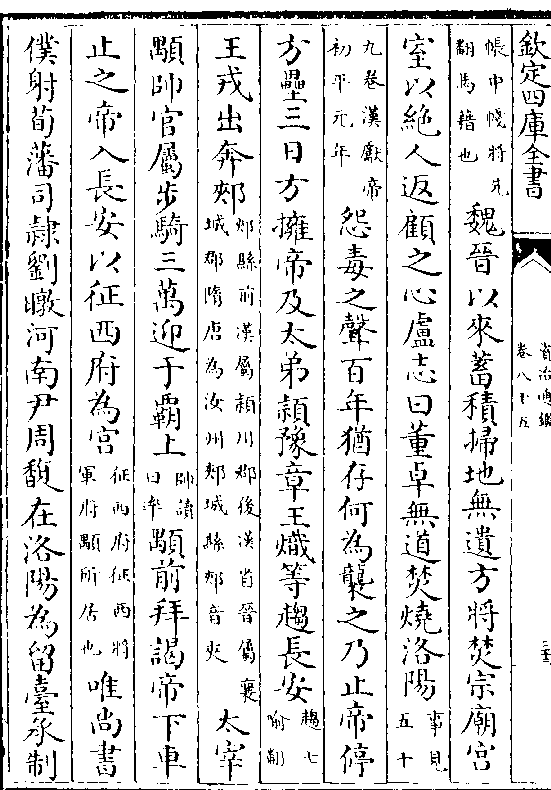 欽定四庫全書
資治通鑑
卷八十五
帳中帴將先
翻馬藉也
魏晉以來蓄積掃地無遺方將焚宗廟宮
室以絶人返顧之心盧志曰董卓無道焚燒洛陽
事見五十
九卷漢獻帝
初平元年
怨毒之聲百年猶存何為襲之乃止帝停
方壘三日方擁帝及太弟頴豫章王熾等趨長安
趨七
喻翻
王戎出奔郟
郟縣前漢屬頴川郡後漢省晉屬襄
城郡隋唐為汝州郟城縣郟音夾
太宰
顒帥官屬步騎三萬迎于霸上
帥讀
曰率
顒前拜謁帝下車
止之帝入長安以征西府為宮
征西府征西將
軍府顒所居也
唯尚書
僕射荀藩司隸劉暾河南尹周馥在洛陽為留臺承制